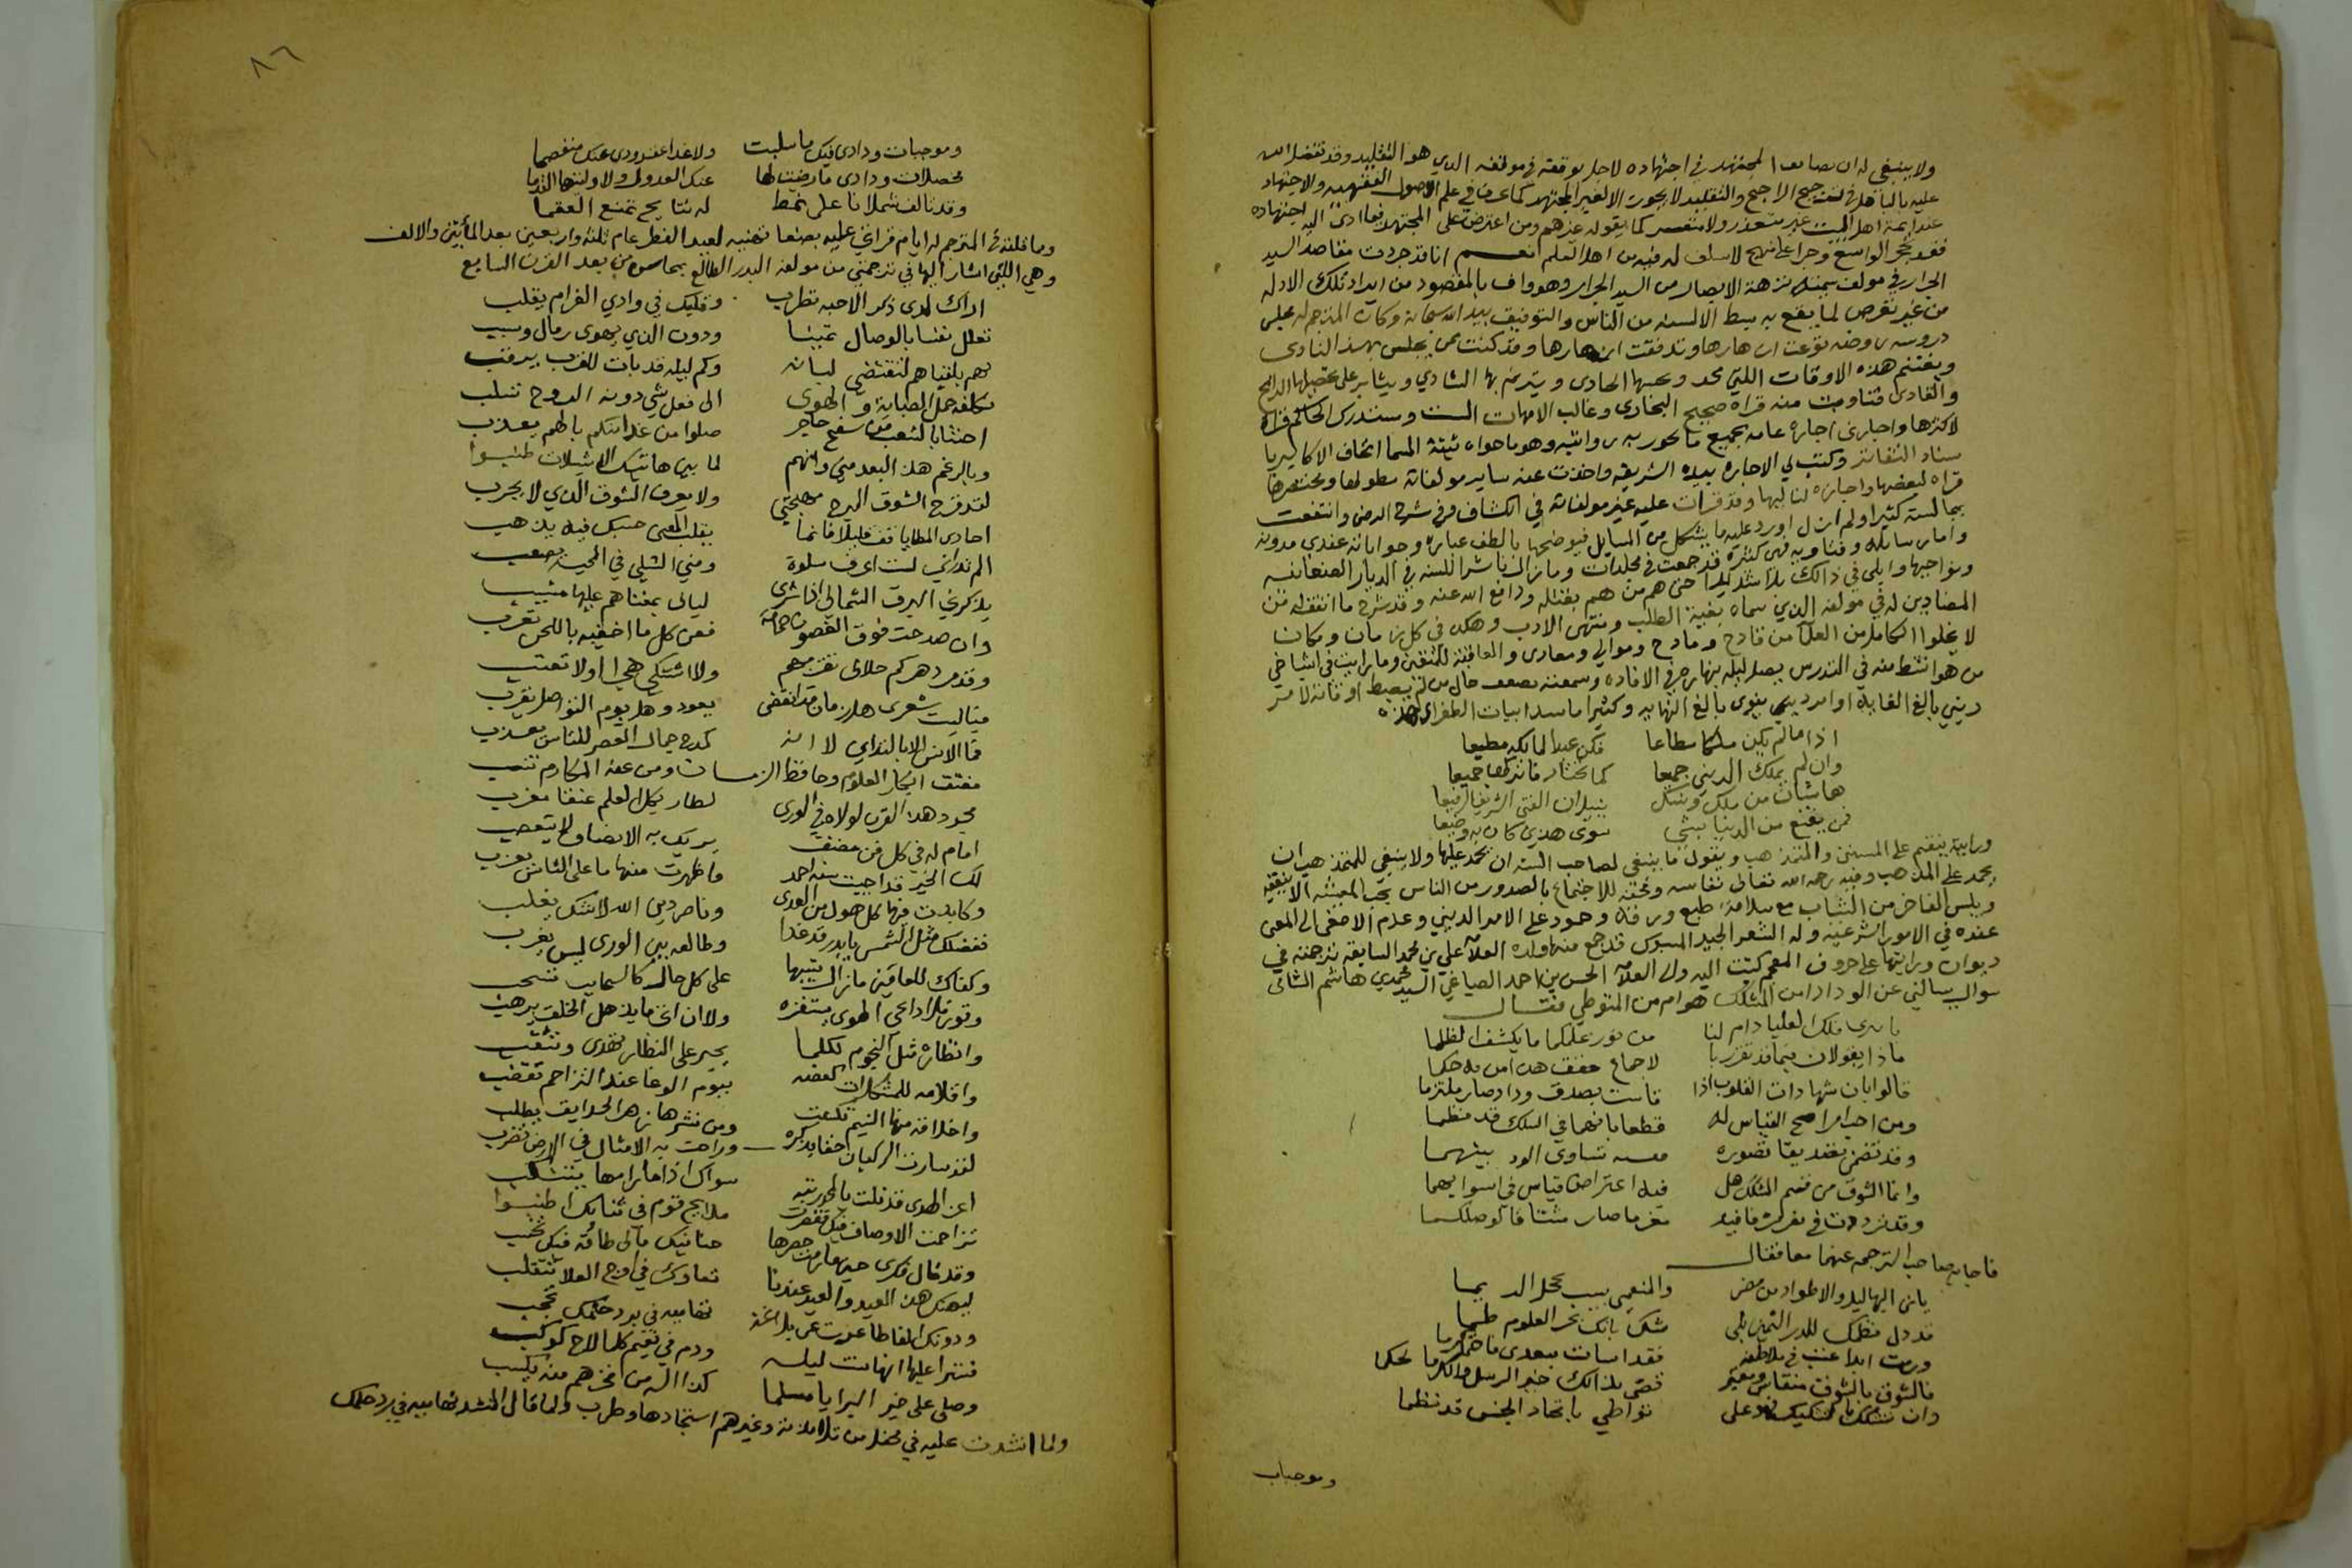 ولا ينبغي له ان يضايق المجتهد في اجتهاده لاجل توقفه في موقفه الذي هو التقليد وقد تفضل الله
عليه بالتاهل في الترجيح الراجح والتقليد لا يجوز الا لغير المجتهد كما عرف في علم الاصول الفقهيه والاجتهاد
عند ايمة اهل البيت غير متعذر ولا متعسر كما يقوله غيرهم ومن اعترض على المجتهد فيما ادى اليه اجتهاده
فقد تحجر الواسع وجرا على نهج لا سلف له فيه من اهل العلم نعم انا قد جردت مقاصد السيد
الجرار في مولف سميته نزهة الابصار من السيل الجرار وهو واف بالمقصود من ايراد تلك الادله
من غير تعرض لما يقع به بسط الالسنه من الناس والتوفيق بيد الله سبحانه وكان المترجم له مجلس
دروسه روضه تنوعت ازهارها وتدفقت انهارها وقد كنت ممن يجلس بهذا النادي
ويغتنم هذه الاوقات اللتي يحدو بحسنها الحادي ويترنم بها الشادي ويثابر على تحصيلها الرايح
والغادي فتناولت منه قراة صحيح البخاري وغالب الامهات الست ومستدرك الحاكم قراة
لاكثرها واجازني اجازة عامه بجميع ما تجوز به روايته وهو ما حواه ثبته المسما اتحاف الاكابر با
سناد الدفاتر وكتب لي الاجازه بيده الشريفه واخذت عنه ساير مولفاته مطولها ومختصرها
قراه لبعضها واجازه لباقيها وقد قرات عليه غير مولفاته في الكشاف وفي شرح الرضي وانتفعت
بمجالسته كثيرا ولم ازل اورد عليه ما يشكل من المسايل فيوضحها بالطف عباره وجواباته عندي مدونه
واما رسايله وفتاويه فهي كثيره قد جمعت في مجلدات وما زال ناشرا للسنه في الديار الصنعانيه
ونواحيها وابلي في ذالك بلا شديدا حتى هم من هم بقتله ودافع الله عنه وقد شرح ما اتفق له من
المضادين له في مولفه الذي سماه بغية الطلب ومنتهى الادب وهكذا في كل زمان ومكان
لا يخلوا الكامل من العلما من قادح ومادح وموالي ومعادي والعاقبه للمتقين وما رايت في اشياخي
من هو انشط منه في التدريس يصل ليله بنهاره في الافاده وسمعته يصف حال من لم يضبط اوقاته لامر
ديني بالغ الغايه او امر دنيوي بالغ النهايه وكثيرا ما ينشد ابيات الطغراي هذه
اذا ما لم يكن ملكا مطاعا فكن عبدا لمالكه مطيعا
وان لم تملك الدنيا جميعا كما تختار فاتركها جميعا
هما شيئان من ملك ونسك ينيلان الفتى الشرف الرفيعا
فمن يقنع من الدنيا بشي سوى هذين كان به وضيعا
ورايته ينقم على المسنن والمتمذهب ويقول ما ينبغي لصاحب السنه ان يجمد عليها ولا ينبغي للمتمذهب ان
يجمد على المذهب وفيه رحمه الله تعالى نفاسه ومحبة للاجتماع بالصدور من الناس يحب المعيشه الانيقه
ويلبس الفاخر من الثياب مع سلامة طبع ورقه وجود على الامر الديني وعدم الاصغى الى المعنى
عنده في الامور الشرعيه وله الشعر الجيد المسبوك قد جمع منها ولده العلامه علي بن محمد السابقه ترجمته في
ديوان ورايتها على حروف المعجم كتبت اليه والى العلامه الحسن بن احمد الصياغي السيد محمد بن هاشم الشامي
سوال يسالني عن الوداد امن المشكك هو ام من المتوطي فقال
يا بدري فلك العليا دام لنا من نور علمكما ما يكشف الظلما
ماذا يقولان فيما قد تقرر با لاجماع حقق هذا من به حكما
قالوا بان شهادات القلوب اذا قامت بصدق وداد صار ملتزما
ومن احب امرا صح القياس له قطعا بانهما في السلك قد نظما
وقد تضمن تصديقا تصوره منه تساوى الود بينهما
وانما الشوق من قسم المشكك هل فيه اعتراض قياس في استوايهما
وقد ترددت في فكري فافيد مغرما صار مشتاقا لوصلكما
فاجاب صاحب الترجمه عنهما معا فقال
يابن البهاليل والاطواد من مضر والمنعمين بسح مخجل الديما
قد دل نظمك للدر الثمين على مثلك بانك بحر العلوم طما
ورمت ابداعتب في ملاطفه فقد اسات ببعدي فاحتكم كرما
فالشوق بالشوق منقاس ومعتبر قضى بذالك خير الرسل والكرما لحكما
وان تشكك بالتشكيك فهو على تواطي باتحاد الجنس قد نظما
وموجبات
٨٦
وموجبات ودادي فيك ما سلبت ولا غدا عقد ودي عنك منفصما
محصلات ودادي ما رضيت لها عنك العدول ولا اوليتها الندما
وقد تالف شملانا على نمط له نتايج تمنع العقما
وما قلته في المترجم له ايام قراتي عليه بصنعا تهنيه لعيد الفطر عام ثلثه واربعين بعد المأتين والالف
وهي اللتي اشار اليها في ترجمتي من مولفه البدر الطالع بمحاسن من بعد القرن السابع
اراك لدى ذكر الاحبه تطرب وقلبك في وادي الغرام يقلب
تعلل نفسا بالوصال تمنيا ودون الذي تهوى رمال وسبسب
تهم بلقياهم لتقتضي لبانه وكم ليله قد بات للقرب يرقب
تكلفه حمل الصبابة والهوى الى فعل شي دونه الروح تسلب
احبتنا بالشعب من سفح حاجر صلوا من غدا منكم بالهم يعذب
وبالرغم هذا البعد مني وانهم لما بين هاتيك الاثيلات طنبوا
لقد قرح الشوق المبرح مهجتي ولا يعرف الشوق الذي لا يجرب
احادي المطايا قف قليلا فانما بقلب المعنى حبك فيه يذهب
الم تدراني لست اعرف سلوة ومني التسلي في المحبة يصعب
يذكرني البرق الشمالي اذا شرى ليالي بمغناهم عليها مشيب
وان صدحت فوق الغصون حمامة فعن كل ما اخفيه باللحن تعرب
وقد مر دهركم حلالي بقربهم ولا اشتكي هجرا ولا تعتب
فياليت شعري هل زمان قد انقضى يعود وهل يوم التواصل يقرب
فما الانس الا بالتداني لا انه كمدح جمال العصر للناس يعذب
مفتق ابكار العلوم وحافظ الزمان ومن عنه المكارم تنسب
مجدد هذا القرن لولاه في الورى لطار بكل العلم عنقا مغرب
امام له في كل فن مصنف يريك به الانصاف لا يتعصب
لك الخير قد احييت سنه احمد فاظهرت منها ما على الناس يعزب
وكابدت فيها كل هول من العدى وناصر دين الله لا شك يغلب
ففضلك مثل الشمس يا بدر قد غدا وطالعه بين الورى ليس يغرب
وكفاك للعافين ما زال سيبها على كل حال كالسحايب تسحب
وقور فلا داعي الهوى يستفزه ولا ان اتى ما يذهل الخلق يرهب
وانظاره مثل النجوم لكلما يحير على النظار تهدي وتثقب
واقلامه للمشكلات كعضبه بيوم الوغا عند التزاحم تقضب
واخلاقه منها النسيم تكسبت ومن نشرها زهر الحدايق يطلب
لقد سارت الركبان حقا بذكره وراحت به الامثال في الارض تضرب
اعز الهدى قد نلت بالجد رتبه سواك اذا ما رامها يتنكب
تزاحمت الاوصاف فيك فقصرت مدايح قوم في ثنائك اطنبوا
وقد قال فكري حينما رمت حصرها حنانيك مالى طاقه فيك تحسب
ليهنك هذا العيد والعيد عندنا تعاودك في اوج العلا تتقلب
ودونك الفاظا عذبت عن بلاغة تهاميه في برد حلمك تحجب
فسترا عليها انها بنت ليله ودم في نعيم كلما لاح كوكب
وصلى على خير البرايا مسلما كذا اله من فخرهم منه يكسب
ولما انشدت عليه في محفل من تلامذته وغيرهم استجادها وطرب ولما قال المنشد تهاميه في برد حلمك